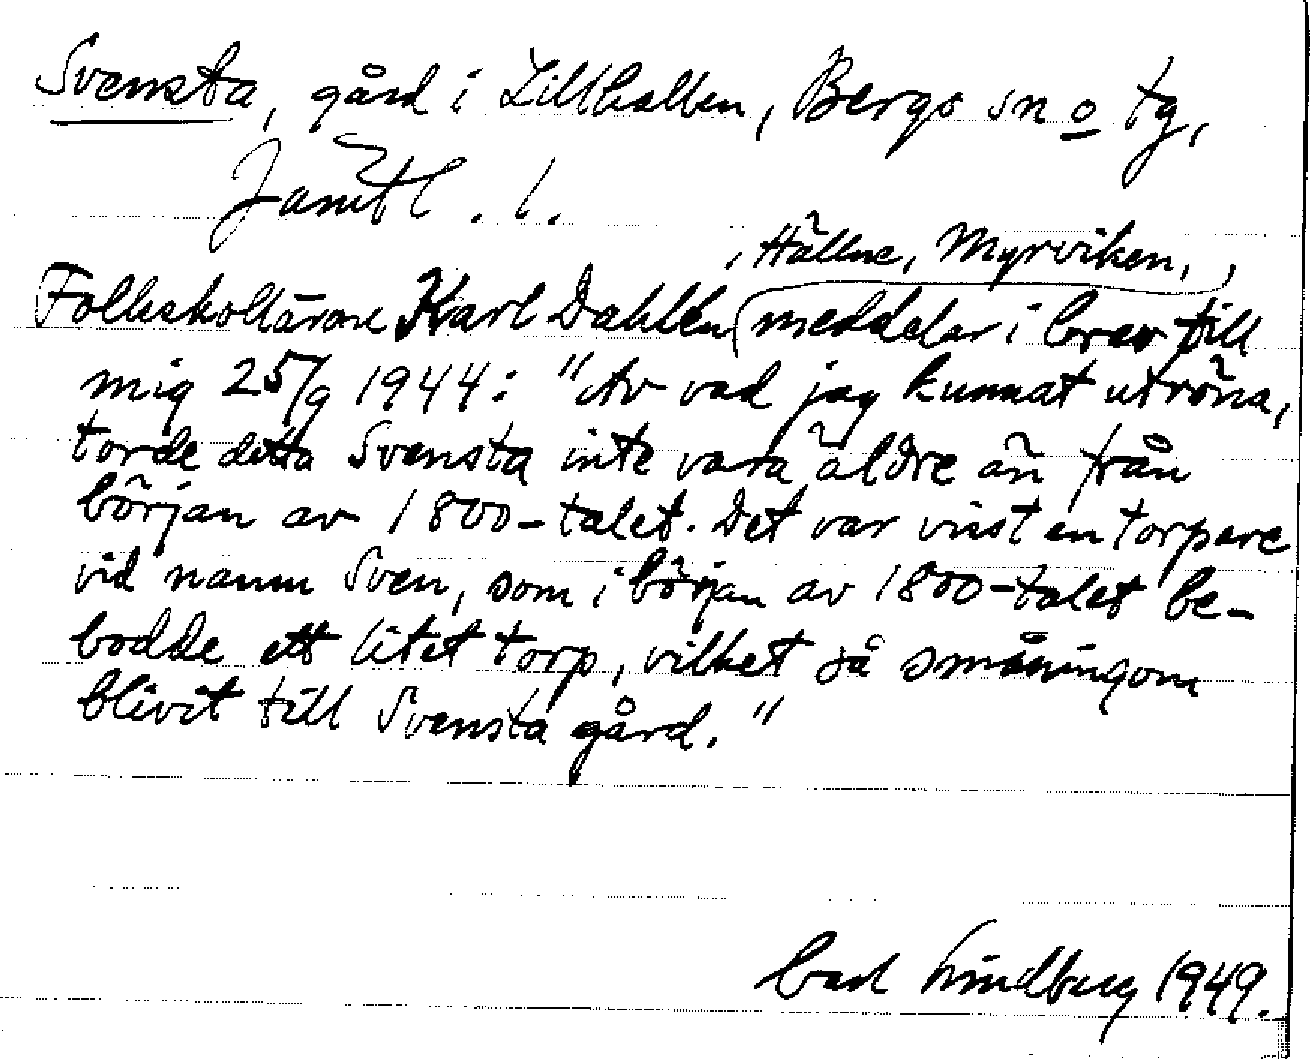 Svensta, gård i Lillhallen, Bergs sn o tg,
Jämtl. l.
, Hällne, Myrviken, ,
Folkskolläraren Karl Dahlén meddelar i brev till
mig 25/9 1944: "Av vad jag kunnat utröna,
torde detta Svensta inte vara äldre än från
början av 1800-talet. Det var visst en torpare
vid namn Sven, som i början av 1800-talet be-
bodde ett litet torp, vilket så småningom
blivit till Svensta gård."
Carl Lindberg 1949.